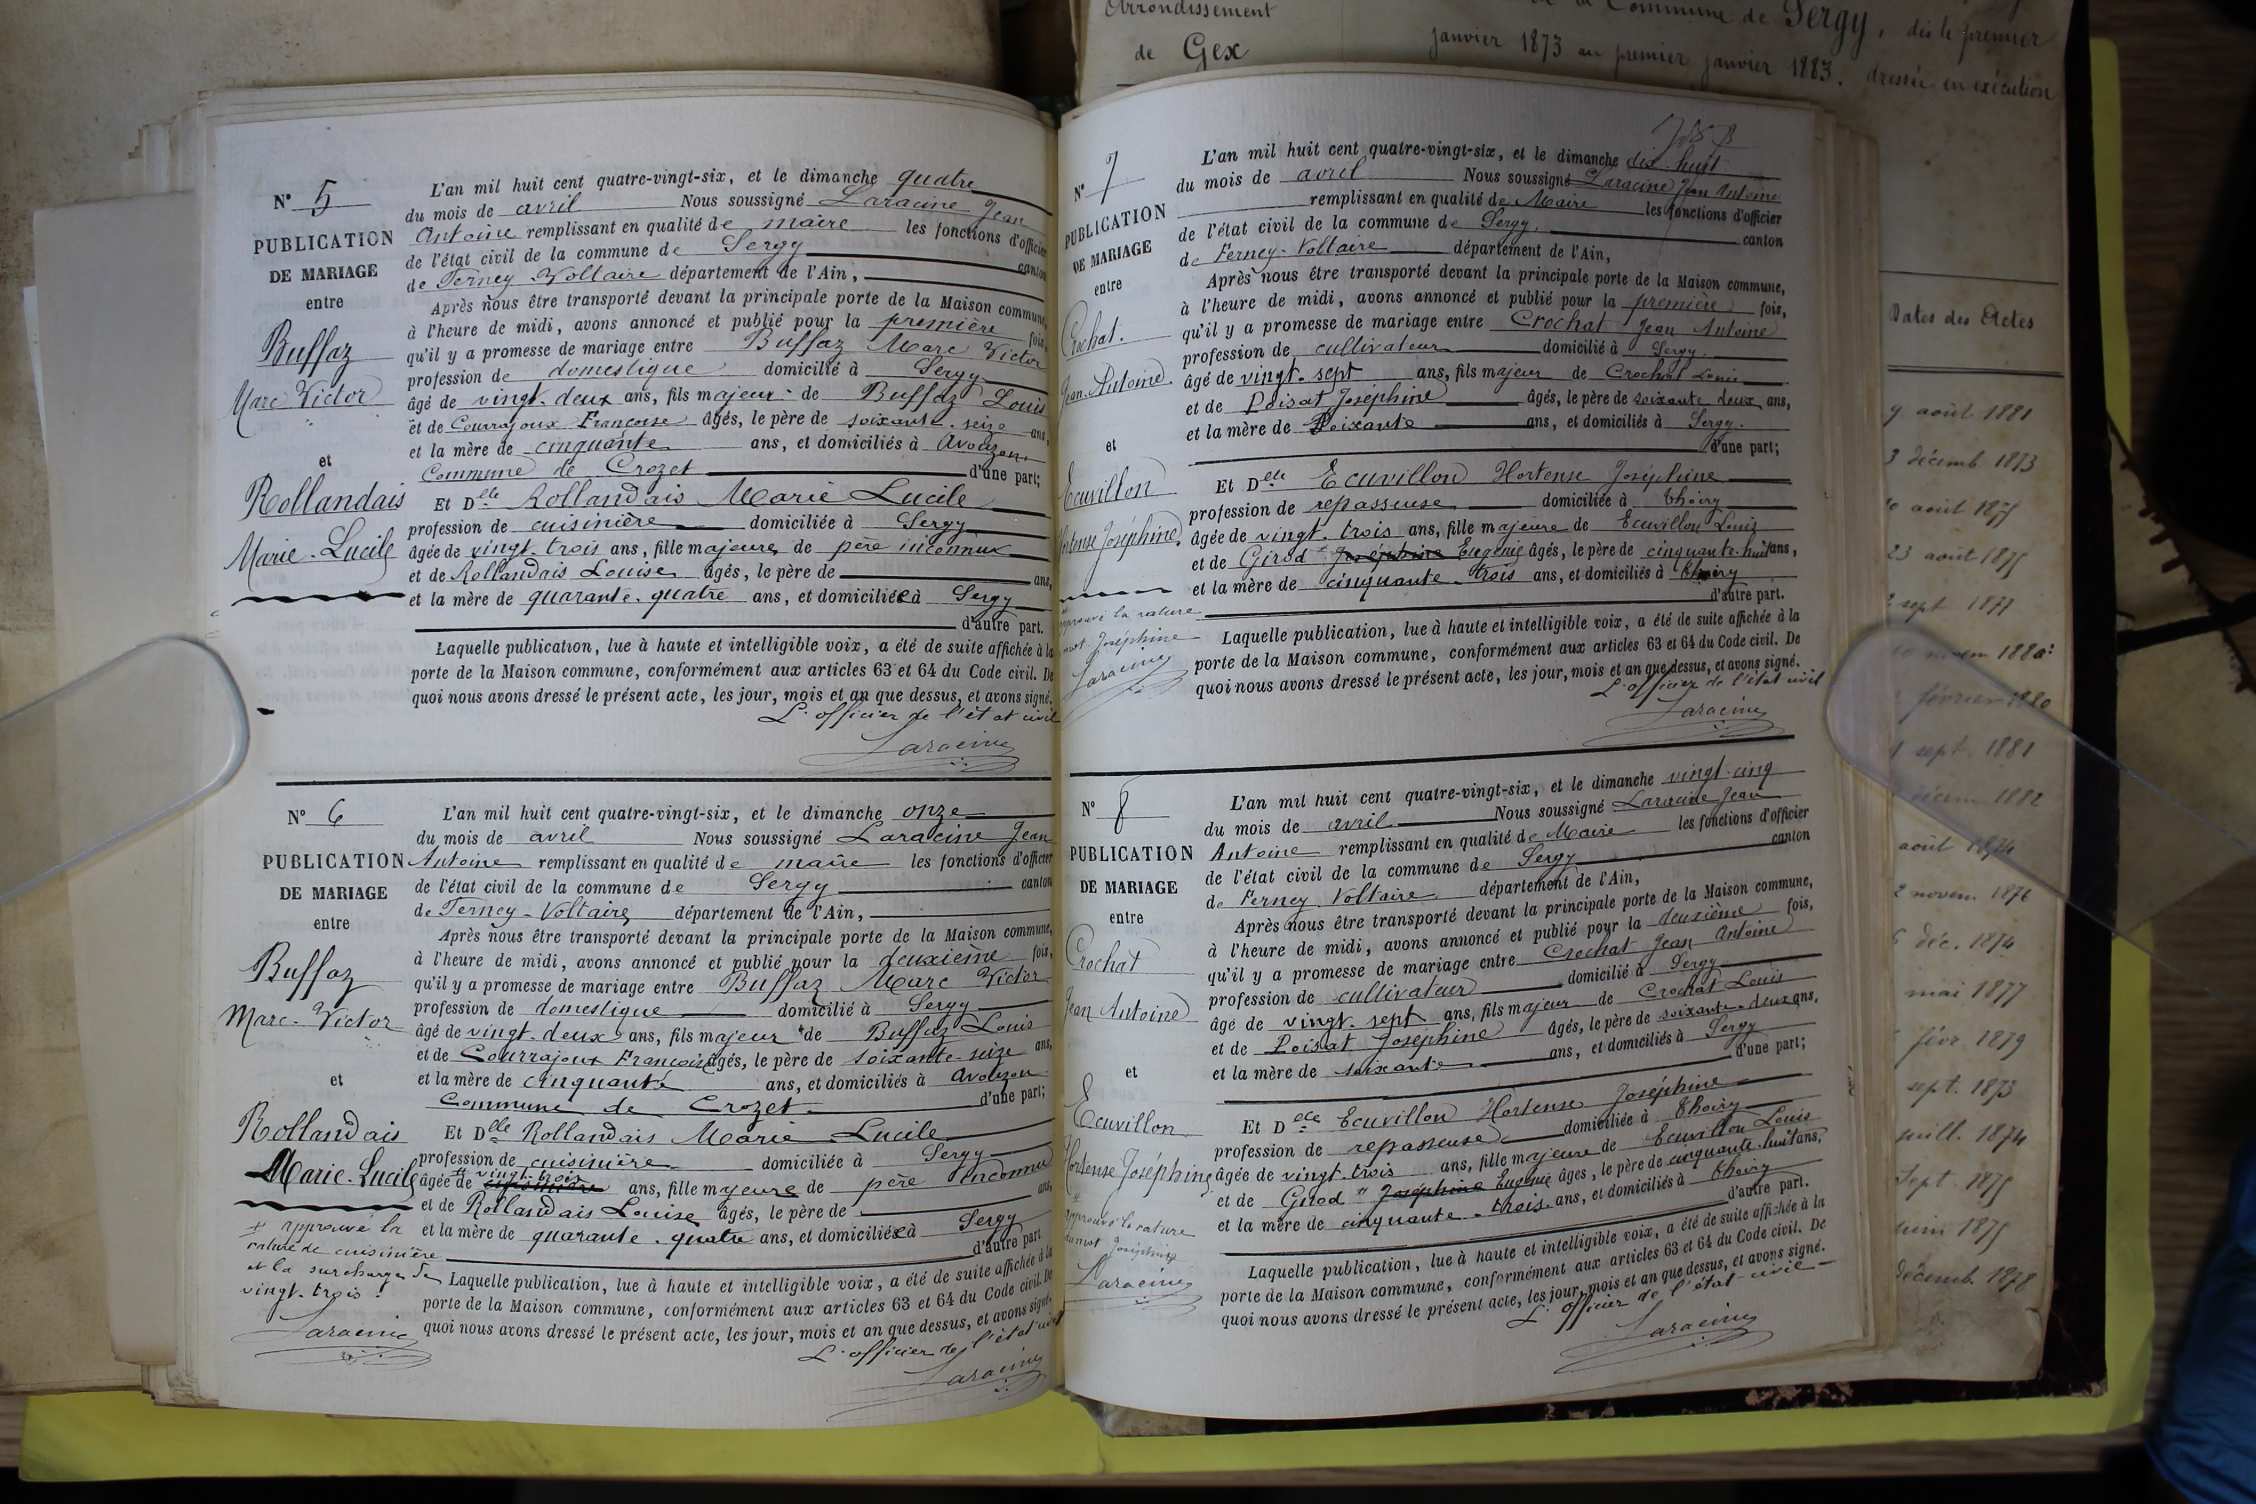 Arrondissement
de Gex
Commune de Sergy, dès le premier
janvier 1873 au premier janvier 1883. dressée en exécution
N° 5
PUBLICATION
DE MARIAGE
entre
Buffaz
Marc Victor
et
Rollandais
Marie-Lucile
L'an mil huit cent quatre-vingt-six, et le dimanche quatre
du mois de avril Nous soussigné Laracine Jean
Antoine remplissant en qualité de maire les fonctions d'officier
de l'état civil de la commune de Sergy canton
de Ferney-Voltaire département de l'Ain,
Après nous être transporté devant la principale porte de la Maison commune,
à l'heure de midi, avons annoncé et publié pour la première fois,
qu'il y a promesse de mariage entre Buffaz Marc Victor
profession de domestique domicilié à Sergy
âgé de vingt-deux ans, fils majeur de Buffaz Louis
et de Courrajoux Françoise âgés, le père de soixante-seize ans,
et la mère de cinquante ans, et domiciliés à Avouzon
Commune de Crozet d'une part;
Et Delle Rollandais Marie Lucile
profession de cuisinière domiciliée à Sergy
âgée de vingt-trois ans, fille majeure de père inconnu
et de Rollandais Louise âgés, le père de ans,
et la mère de quarante-quatre ans, et domiciliée à Sergy
d'autre part.
Laquelle publication, lue à haute et intelligible voix, a été de suite affichée à la
porte de la Maison commune, conformément aux articles 63 et 64 du Code civil. De
quoi nous avons dressé le présent acte, les jour, mois et an que dessus, et avons signé.
L'officier de l'état civil
Laracine
N° 6
PUBLICATION
DE MARIAGE
entre
Buffaz
Marc-Victor
et
Rollandais
Marie-Lucile
# approuvé la
rature de cuisinière
et la surcharge de
vingt-trois !
Laracine
L'an mil huit cent quatre-vingt-six, et le dimanche onze
du mois de avril Nous soussigné Laracine Jean
Antoine remplissant en qualité de maire les fonctions d'officier
de l'état civil de la commune de Sergy canton
de Ferney-Voltaire département de l'Ain,
Après nous être transporté devant la principale porte de la Maison commune,
à l'heure de midi, avons annoncé et publié pour la deuxième fois,
qu'il y a promesse de mariage entre Buffaz Marc Victor
profession de domestique domicilié à Sergy
âgé de vingt-deux ans, fils majeur de Buffaz Louis
et de Courrajoux Françoise âgés, le père de soixante-seize ans,
et la mère de cinquante ans, et domiciliés à Avouzon
Commune de Crozet d'une part;
Et Delle Rollandais Marie Lucile
profession de cuisinière domiciliée à Sergy
âgée de # vingt-trois cuisinière ans, fille majeure de père inconnu
et de Rollandais Louise âgés, le père de ans,
et la mère de quarante-quatre ans, et domiciliée à Sergy
d'autre part
Laquelle publication, lue à haute et intelligible voix, a été de suite affichée à la
porte de la Maison commune, conformément aux articles 63 et 64 du Code civil. De
quoi nous avons dressé le présent acte, les jour, mois et an que dessus, et avons signé.
L'officier de l'état civil
Laracine
N° 7
PUBLICATION
DE MARIAGE
entre
Crochat
Jean Antoine
et
Ecuvillon
Hortense Joséphine
approuvé la rature
mot Joséphine
Laracine
L'an mil huit cent quatre-vingt-six, et le dimanche dix-huit
du mois de avril Nous soussigné Laracine Jean Antoine
remplissant en qualité de Maire les fonctions d'officier
de l'état civil de la commune de Sergy canton
de Ferney-Voltaire département de l'Ain,
Après nous être transporté devant la principale porte de la Maison commune,
à l'heure de midi, avons annoncé et publié pour la première fois,
qu'il y a promesse de mariage entre Crochat Jean Antoine
profession de cultivateur domicilié à Sergy
âgé de vingt-sept ans, fils majeur de Crochat Louis
et de Poisat Joséphine âgés, le père de soixante deux ans,
et la mère de soixante ans, et domiciliés à Sergy.
d'une part;
Et Delle Ecuvillon Hortense Joséphine
profession de repasseuse domiciliée à Thoiry
âgée de vingt-trois ans, fille majeure de Ecuvillon Louis
et de Girod # Joséphine Eugénie âgés, le père de cinquante-huit ans,
et la mère de cinquante-trois ans, et domiciliés à Thoiry
d'autre part.
Laquelle publication, lue à haute et intelligible voix, a été de suite affichée à la
porte de la Maison commune, conformément aux articles 63 et 64 du Code civil. De
quoi nous avons dressé le présent acte, les jour, mois et an que dessus, et avons signé.
L'officier de l'état civil
Laracine
N° 8
PUBLICATION
DE MARIAGE
entre
Crochat
Jean Antoine
et
Ecuvillon
Hortense Joséphine
#
approuvé la rature
du mot Joséphine
Laracine
L'an mil huit cent quatre-vingt-six, et le dimanche vingt-cinq
du mois de avril Nous soussigné Laracine Jean
Antoine remplissant en qualité de Maire les fonctions d'officier
de l'état civil de la commune de Sergy canton
de Ferney Voltaire département de l'Ain,
Après nous être transporté devant la principale porte de la Maison commune,
à l'heure de midi, avons annoncé et publié pour la deuxième fois,
qu'il y a promesse de mariage entre Crochat Jean Antoine
profession de cultivateur domicilié à Sergy
âgé de vingt-sept ans, fils majeur de Crochat Louis
et de Poisat Joséphine âgés, le père de soixante-deux ans,
et la mère de soixante ans, et domiciliés à Sergy
d'une part;
Et Delle Ecuvillon Hortense Joséphine
profession de repasseuse domiciliée à Thoiry
âgée de vingt trois ans, fille majeure de Ecuvillon Louis
et de Girod # Joséphine Eugénie âgés, le père de cinquante-huit ans,
et la mère de cinquante-trois ans, et domiciliés à Thoiry
d'autre part.
Laquelle publication, lue à haute et intelligible voix, a été de suite affichée à la
porte de la Maison commune, conformément aux articles 63 et 64 du Code civil. De
quoi nous avons dressé le présent acte, les jour, mois et an que dessus, et avons signé.
L'officier de l'état-civil
Laracine
Dates des Actes
9 août 1881
3 décemb. 1873
août 1875
23 août 1875
sept 1877
novem 1880
février 1880
sept. 1881
décem 1882
août 1874
2 novem. 1876
déc. 1874
mai 1877
févr. 1879
sept. 1873
juill. 1874
Sept. 1875
juin 1875
décemb. 1878